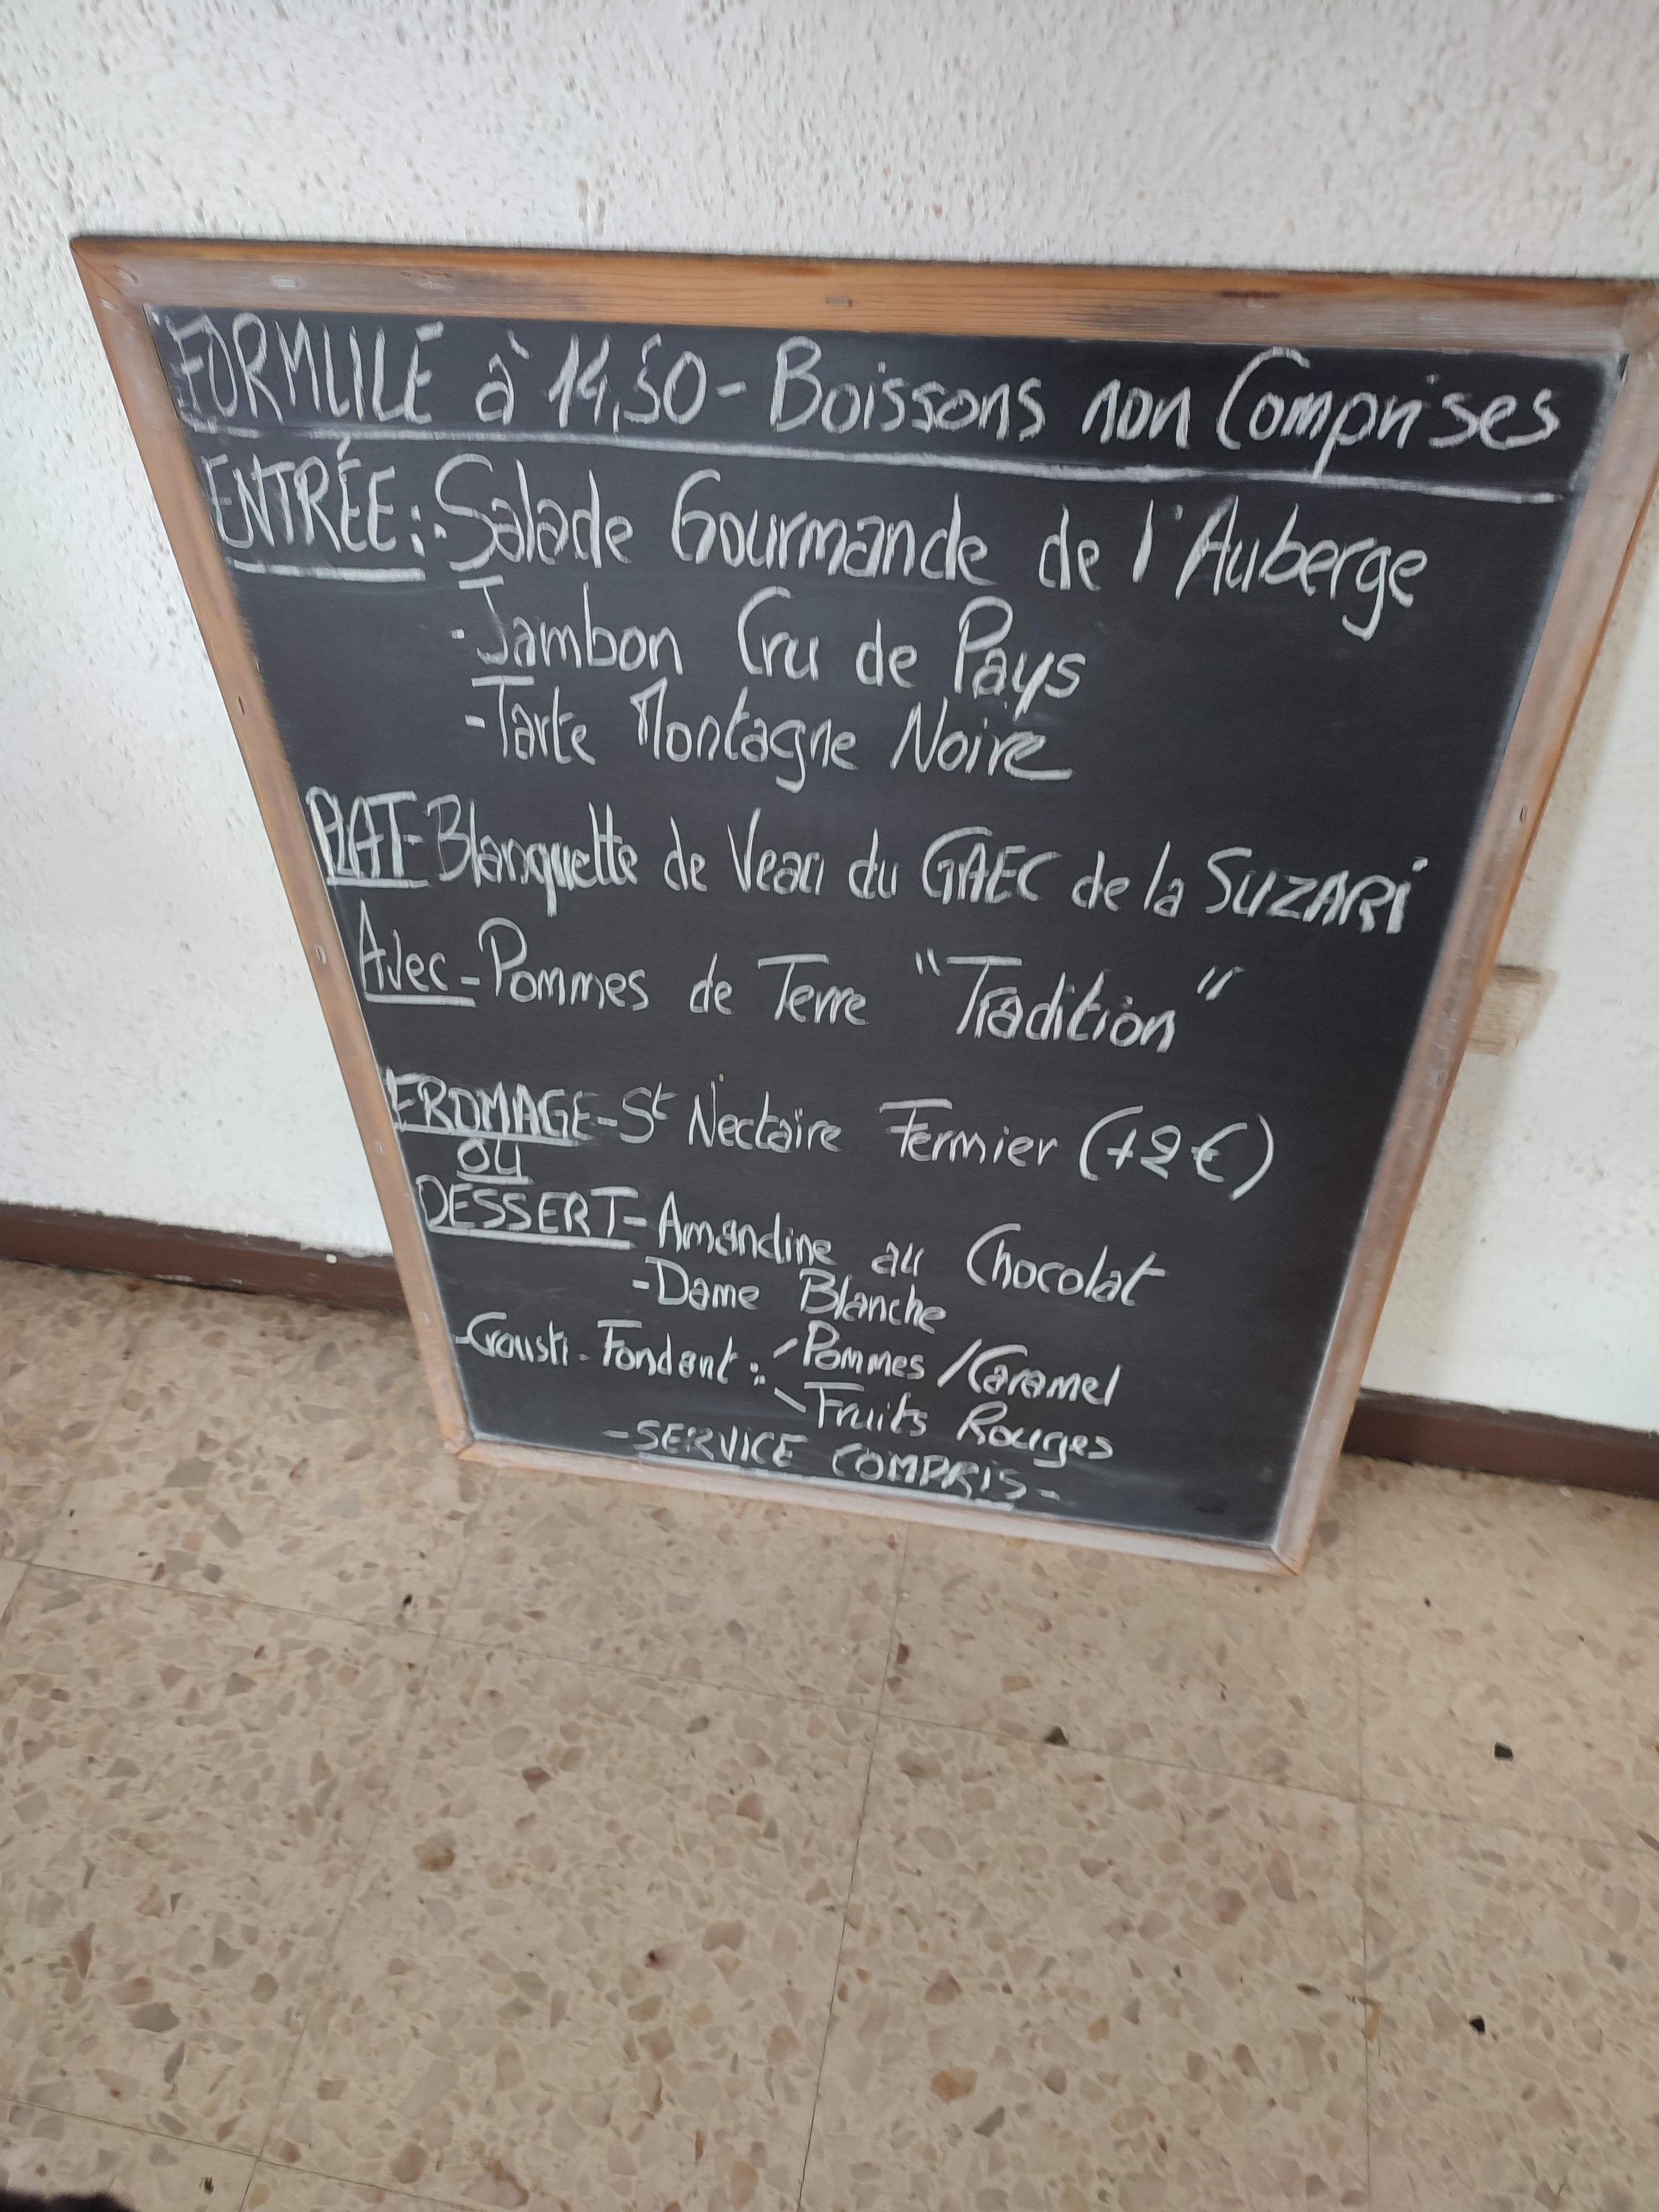 FORMULE à 14,50 - Boissons non Comprises
ENTRÉE: - Salade Gourmande de l'Auberge
- Jambon Cru de Pays
- Tarte Montagne Noire
PLAT - Blanquette de Veau du GAEC de la SUZARi
Avec - Pommes de Terre "Tradition"
FROMAGE - St Nectaire Fermier (+2€)
OU
DESSERT - Amandine au Chocolat
- Dame Blanche
- Crousti - Fondant : - Pommes / Caramel
- Fruits Rouges
- SERVICE COMPRIS -